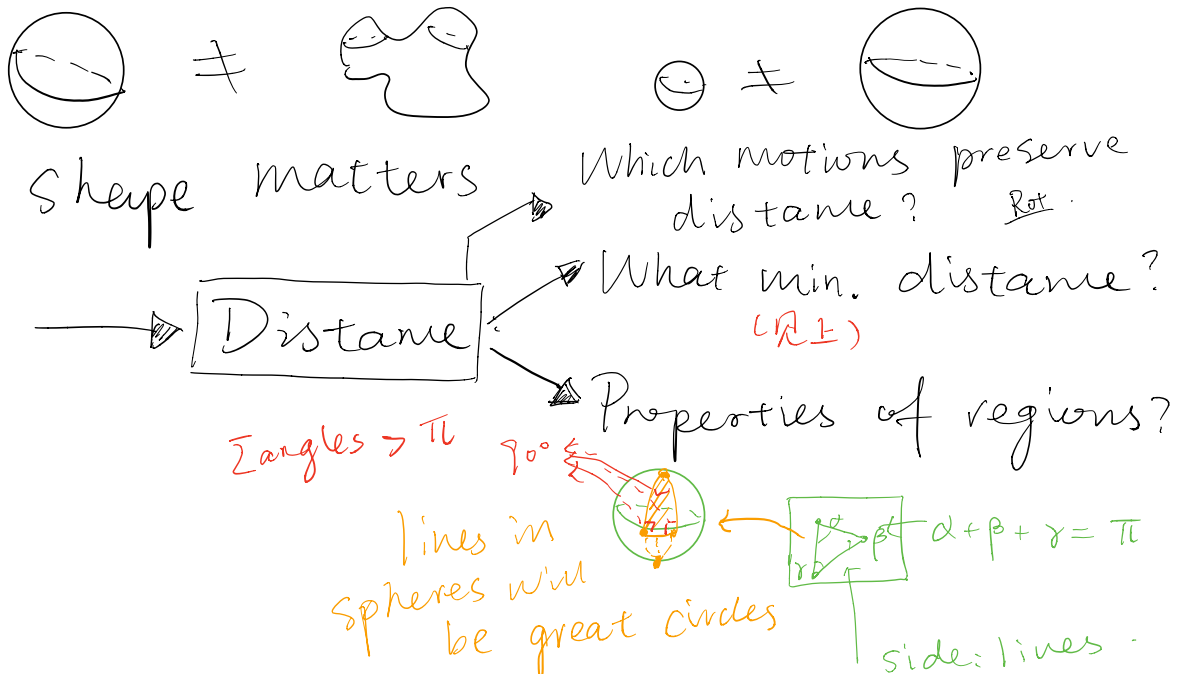 ≠
≠
shape matters
Which motions preserve
distance? Rot.
What min. distance?
(见上)
Distance
Properties of regions?
Σangles > π
90°
lines in
spheres will
be great circles
α
β
γ
α + β + γ = π
side: lines.